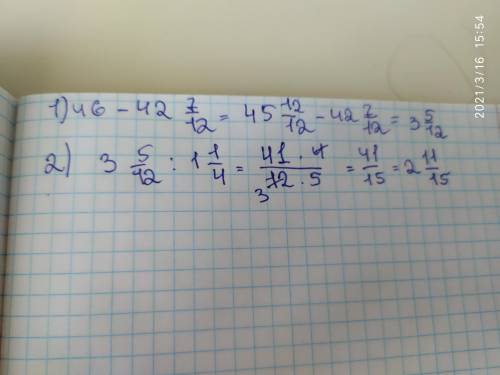 2021/3/16 15:54
1) 46 - 42 7/12 = 45 12/12 - 42 7/12 = 3 5/12
2) 3 5/12 : 1 1/4 = 41 · 4 / 3 12 · 5 = 41/15 = 2 11/15